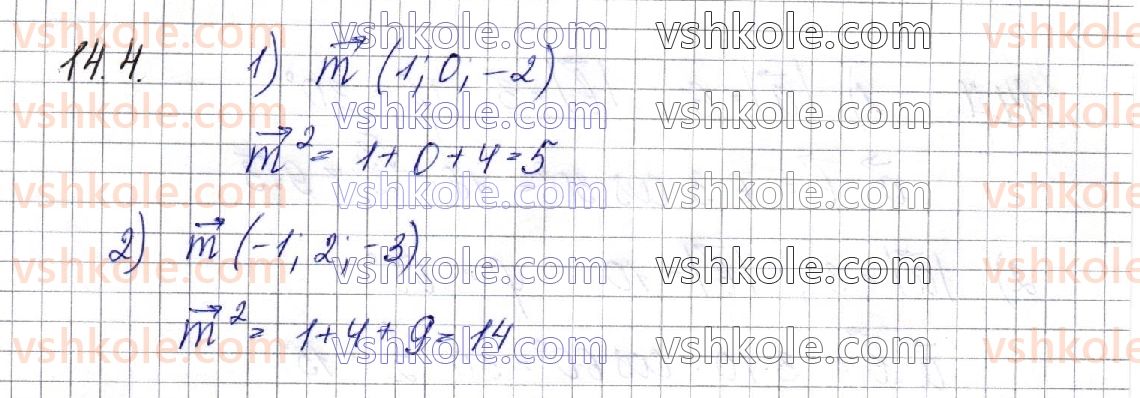 14.4. 1) m⃗ (1; 0; -2)
m⃗² = 1 + 0 + 4 = 5
2) m⃗ (-1; 2; -3)
m⃗² = 1 + 4 + 9 = 14
vshkole.com vshkole.com vshkole.com vshkole.com
vshkole.com vshkole.com vshkole.com vshkole.com
vshkole.com vshkole.com vshkole.com vshkole.com
vshkole.com vshkole.com vshkole.com vshkole.com
vshkole.com vshkole.com vshkole.com vshkole.com